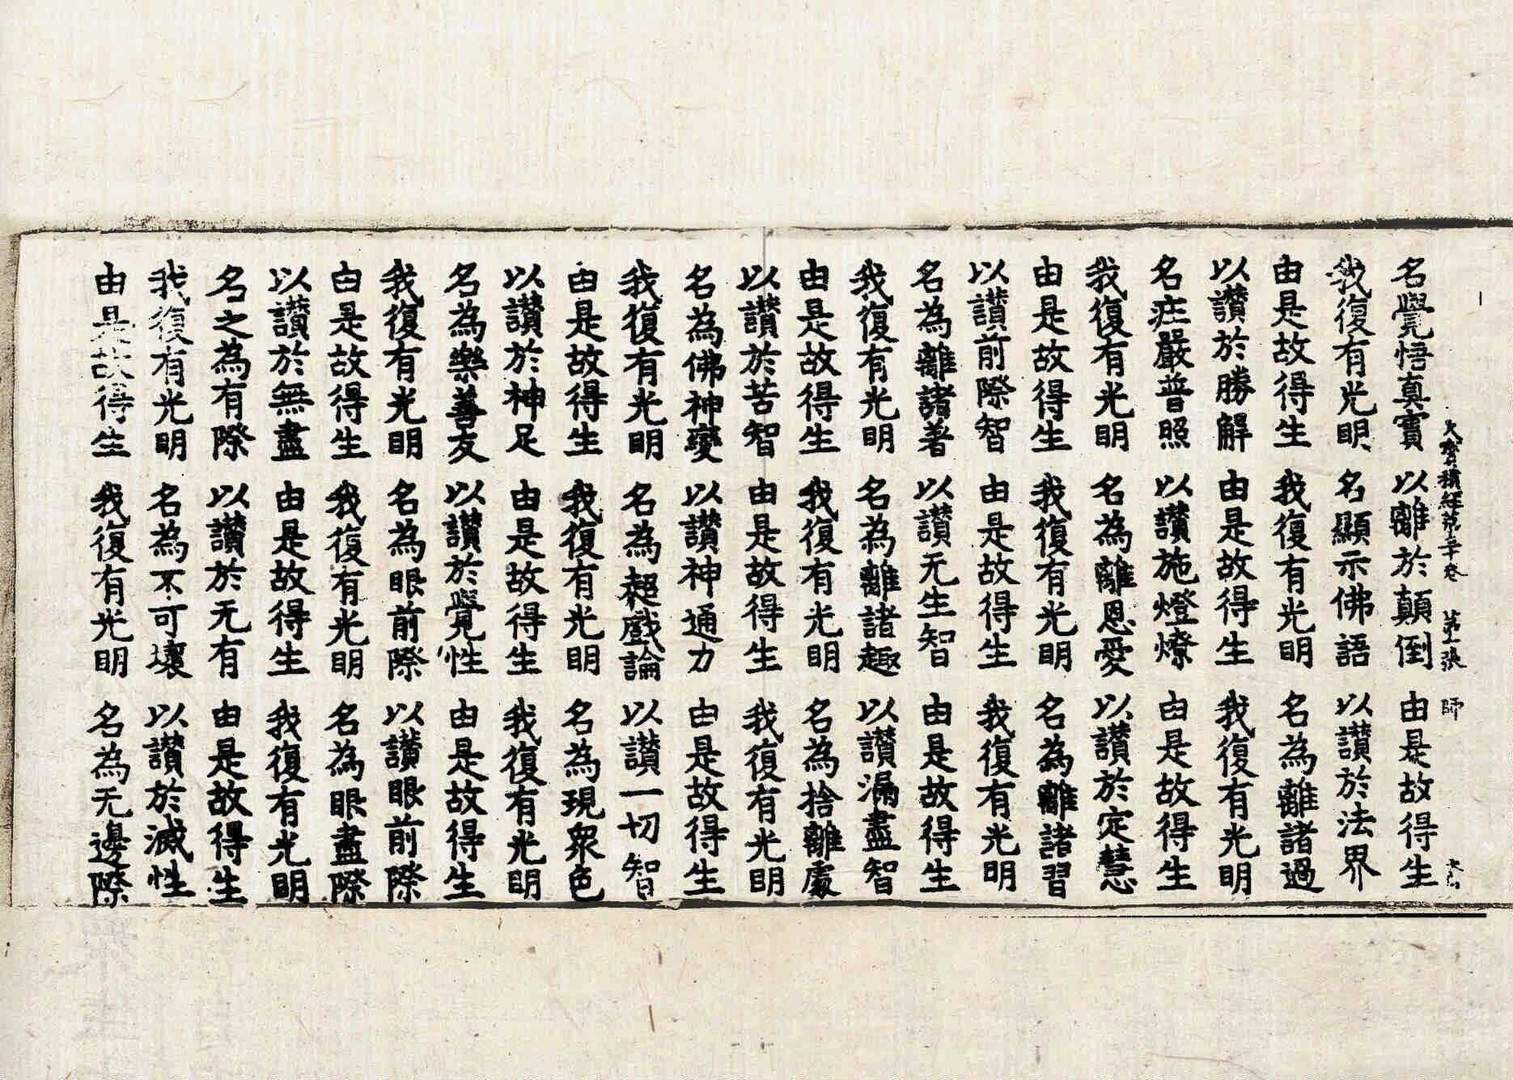 大寶積經第三十卷 第十一張 師
名覺悟真實 以離於顛倒 由是故得生
我復有光明 名顯示佛語 以讃於法界
由是故得生 我復有光明 名為離諸過
以讃於勝解 由是故得生 我復有光明
名庄嚴普照 以讃施燈燎 由是故得生
我復有光明 名為離恩愛 以讃於定慧
由是故得生 我復有光明 名為離諸習
以讃前際智 由是故得生 我復有光明
名為離諸著 以讃无生智 由是故得生
我復有光明 名為離諸趣 以讃漏盡智
由是故得生 我復有光明 名為捨離處
以讃於苦智 由是故得生 我復有光明
名為佛神變 以讃神通力 由是故得生
我復有光明 名為超戲論 以讃一切智
由是故得生 我復有光明 名為現衆色
以讃於神足 由是故得生 我復有光明
名為樂善友 以讃於覺性 由是故得生
我復有光明 名為眼前際 以讃眼前際
由是故得生 我復有光明 名為眼盡際
以讃於無盡 由是故得生 我復有光明
名之為有際 以讃於无有 由是故得生
我復有光明 名為不可壞 以讃於滅性
由是故得生 我復有光明 名為无邊際